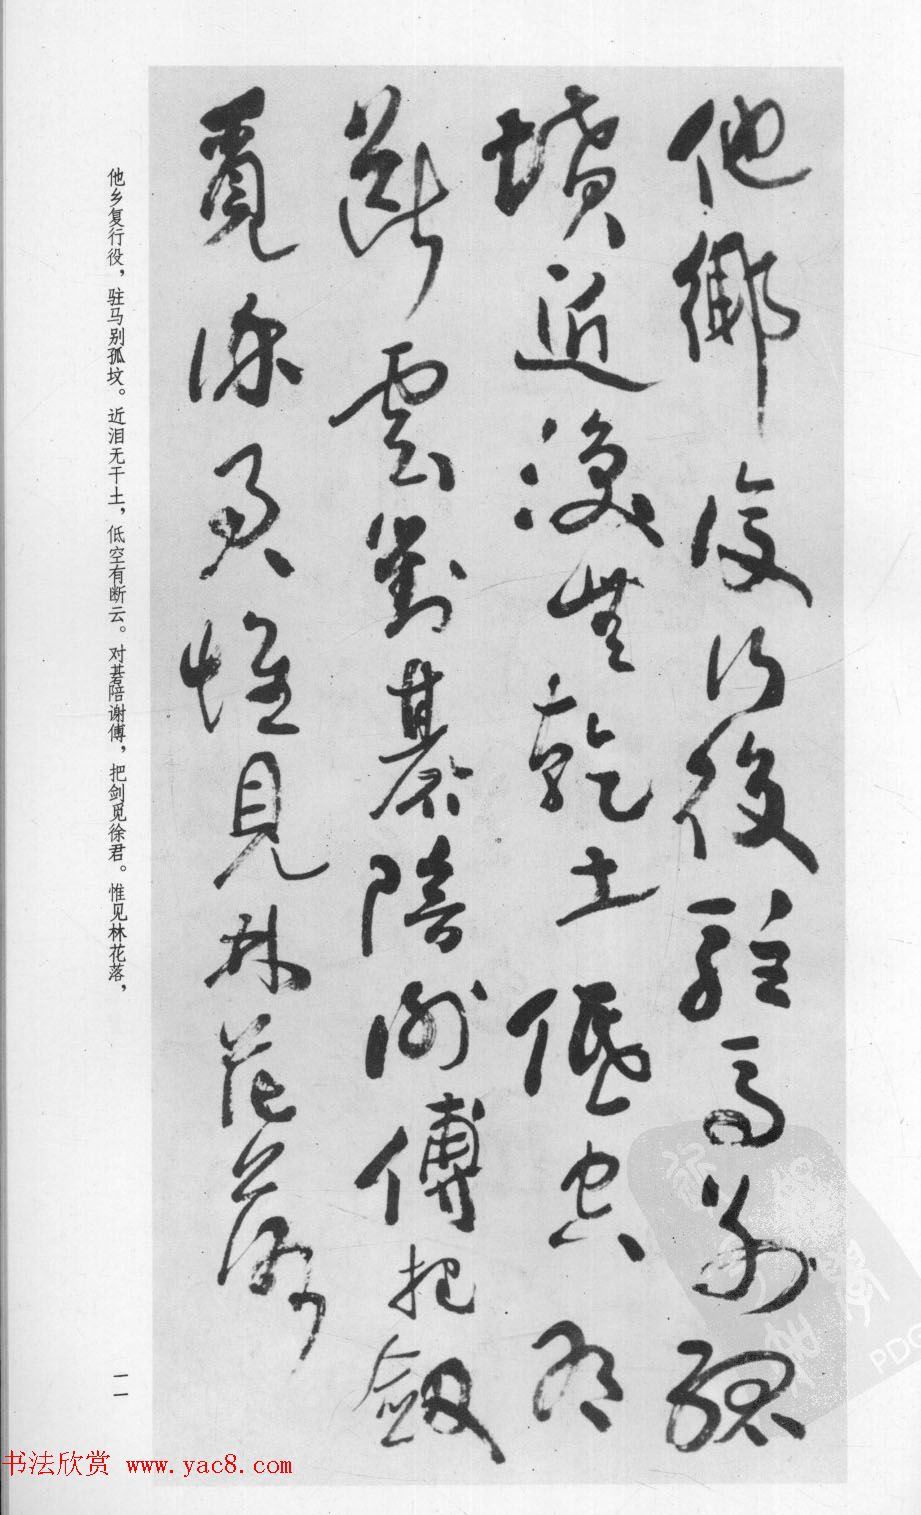 他鄉復行役駐馬別孤
墳近淚無乾土低空有
斷雲對棊陪謝傅把劔
覓徐君惟見林花落
他乡复行役，驻马别孤坟。近泪无干土，低空有断云。对棊陪谢傅，把剑觅徐君。惟见林花落，
一一
PDG
书法欣赏 www.yac8.com